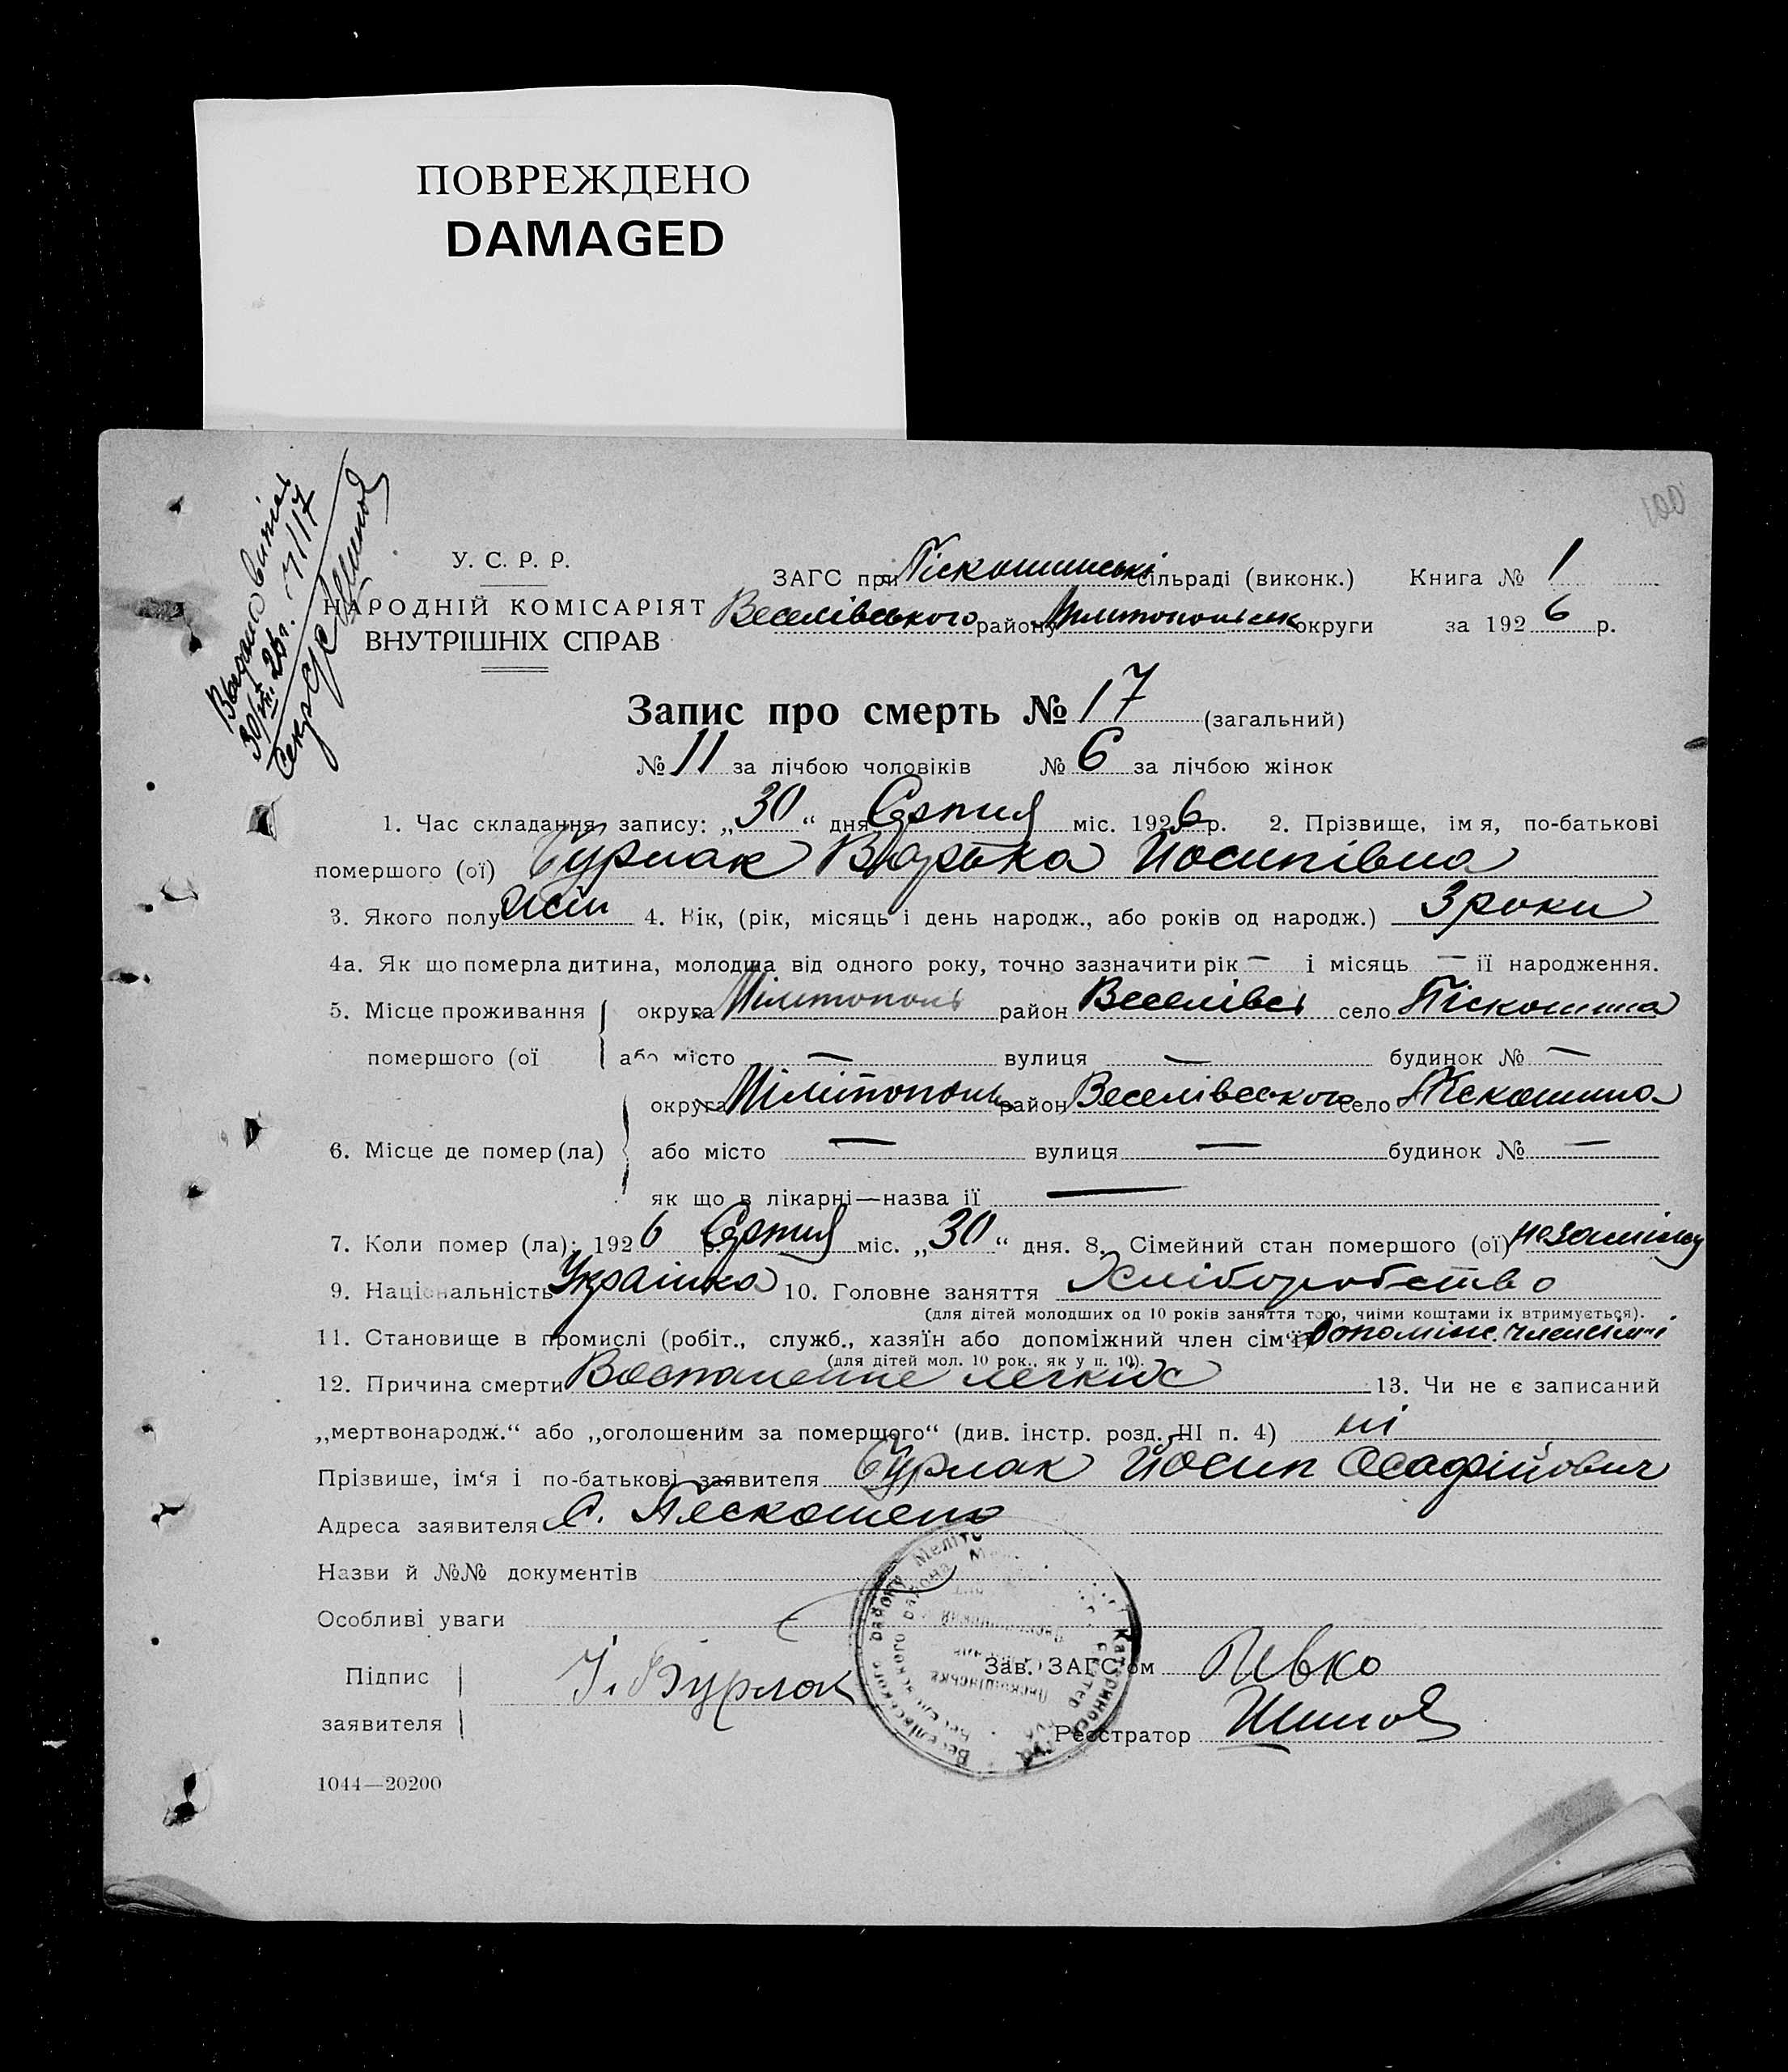 ПОВРЕЖДЕНО
DAMAGED
100
Видано витяг
30/VIII 26 г. № 17
Секр
У. С. Р. Р.
НАРОДНІЙ КОМІСАРІЯТ
ВНУТРІШНІХ СПРАВ
ЗАГС при Піскошинські сільраді (виконк.) Книга № 1
Веселівського району Мелитопольськ округи за 1926 р.
Запис про смерть № 17 (загальний)
№ 11 за лічбою чоловіків № 6 за лічбою жінок
1. Час складання запису: „30“ дня Серпня міс. 1926 р. 2. Прізвище, імя, по-батькові
померщого (ої) Бурлак Йосипівна
3. Якого полу жін 4. Вік, (рік, місяць і день народж., або років од народж.) 3 роки
4а. Як що померла дитина, молодша від одного року, точно зазначити рік — і місяць — її народження.
5. Місце проживання округа Мілітополь район Веселівсь село Піскошина
померщого (ої або місто — вулиця — будинок № —
округа Мілітополь район Веселівського село Піскошина
6. Місце де помер (ла) або місто — вулиця — будинок № —
як що в лікарні—назва її —
7. Коли помер (ла): 1926 р. Серпня міс. „30“ дня. 8. Сімейний стан померщого (ої)
9. Національність Українка 10. Головне заняття Хліборобство
(для дітей молодших од 10 років заняття того, чиїми коштами їх втримується).
11. Становище в промислі (робіт., служб., хазяїн або допоміжний член сім‘ї) допоміж. член сімї
(для дітей мол. 10 рок., як у п. 10).
12. Причина смерти Воспаление легких 13. Чи не є записаний
„мертвонародж.“ або „оголошеним за померщого“ (див. інстр. розд. III п. 4) ні
Прізвише, ім‘я і по-батькові заявителя Бурлак Йосип Осафійович
Адреса заявителя С. Пескошено
Назви й №№ документів
Особливі уваги
Підпис
заявителя І. Бурлак
Зав. ЗАГС'ом Півко
Реєстратор
Веселівського району Меліто
1044—20200